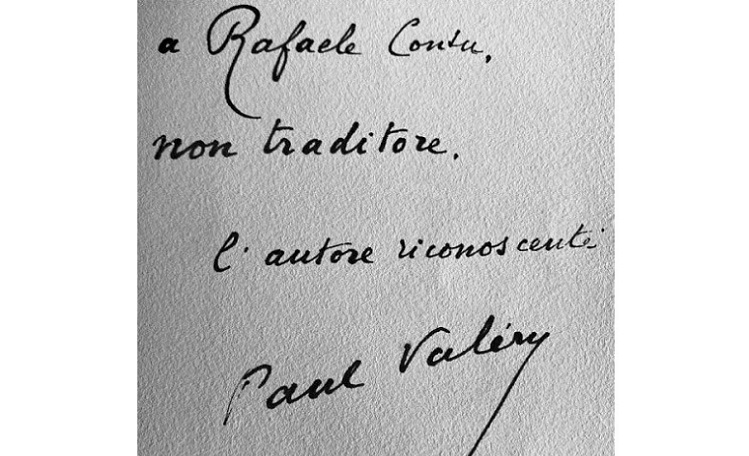 a Rafaele Contu,
non traditore.
l'autore riconoscente
Paul Valéry